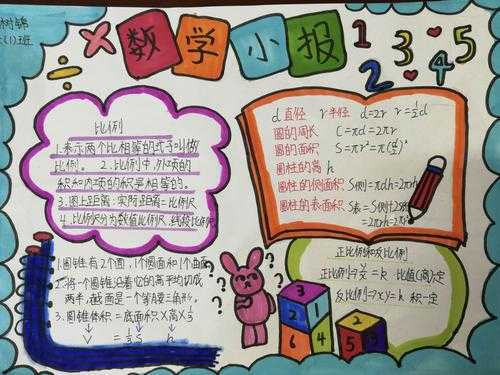 树锦
(1)班
数学小报
1 3 5
2 4
比例
1.表示两个比相等的式子叫做
比例。 2.比例中,外项的
积和内项的积是相等的。
3.图上距离:实际距离=比例尺
4.比例尺分为数值比例尺,线段比例尺
d 直径 r 半径 d=2r r=½d
圆的周长 C=πd=2πr
圆的面积 S=πr²=π(d/2)²
圆柱的高 h
圆柱的侧面积 S侧=πdh=2πrh
圆柱的表面积 S表=S侧+2S
=2πrh+2πr²
1.圆锥有2个面,1个圆面和1个曲面
2.将一个圆锥沿着它的高平均切成
两半,截面是一个等腰三角形。
3.圆锥体积=底面积×高×⅓
V = ⅓ S h
? ? ? ?
3
2 1
6 4 5 2
正比例和反比例
正比例→y/x=k 比值(商)一定
反比例→xy=k 积一定